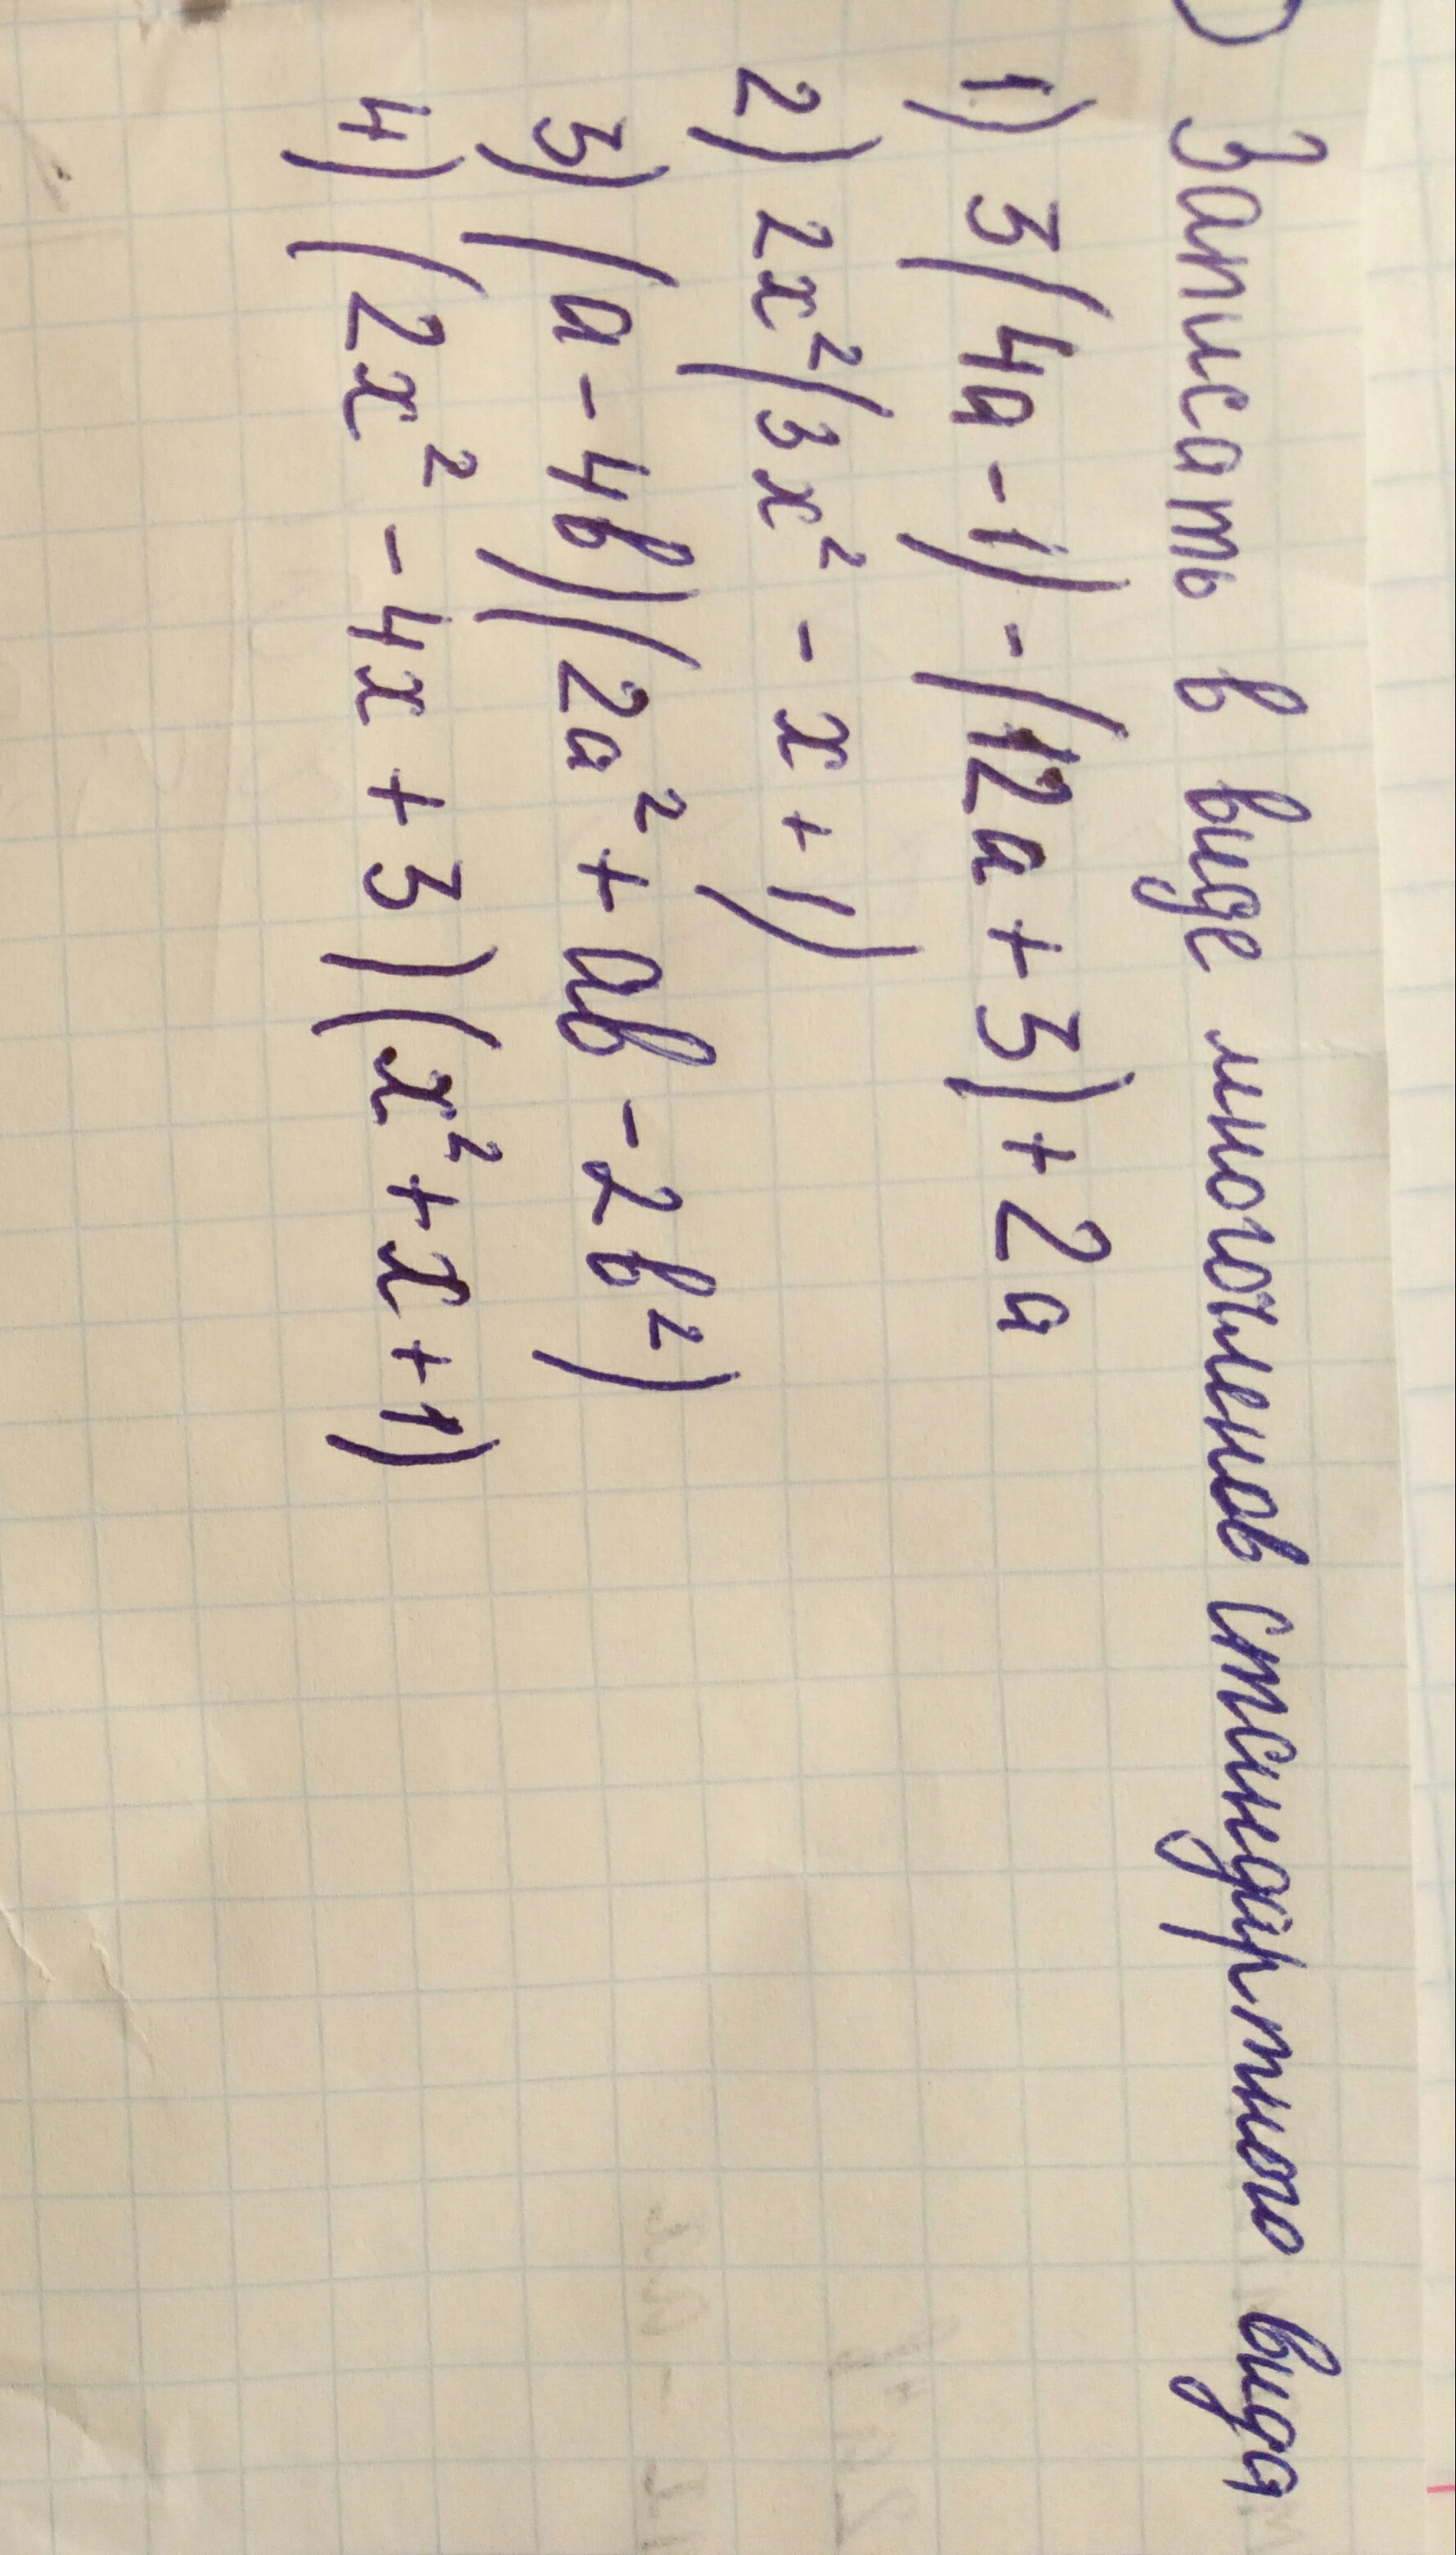 ) Записать в виде многочленов стандартного вида
1) 3(4a - 1) - (12a + 3) + 2a
2) 2x²(3x² - x + 1)
3) (a - 4b)(2a² + ab - 2b²)
4) (2x² - 4x + 3)(x² + x + 1)